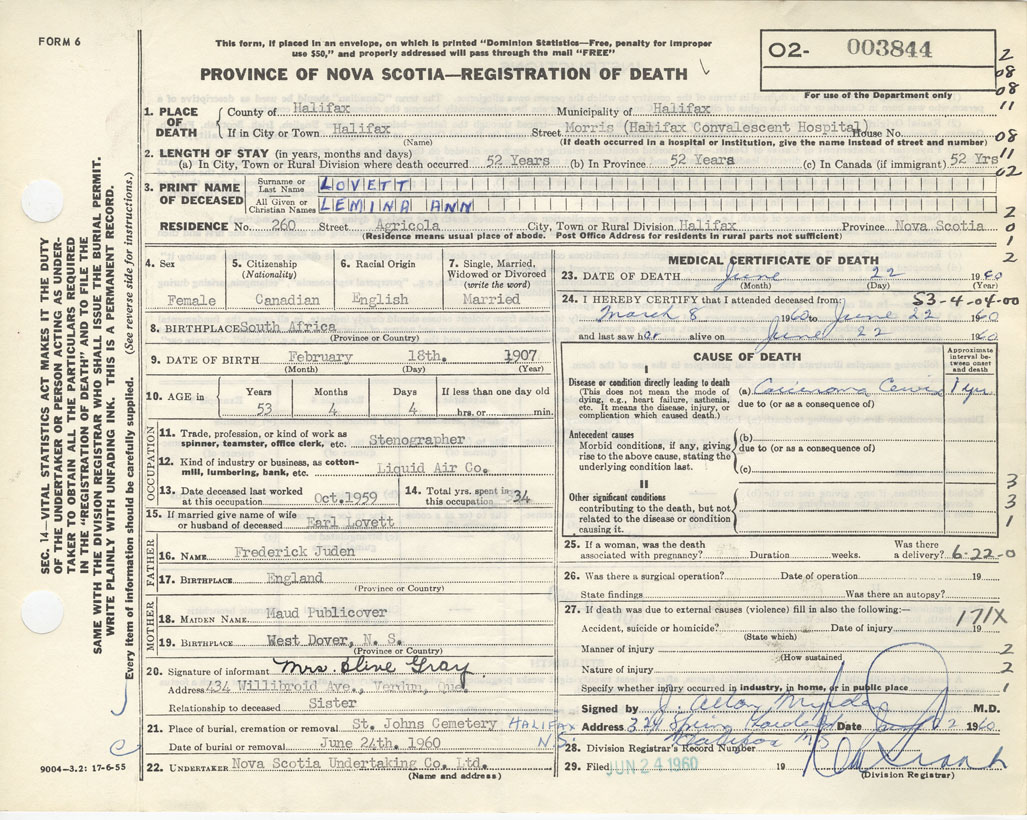 FORM 6
This form, if placed in an envelope, on which is printed "Dominion Statistics—Free, penalty for improper
use $50," and properly addressed will pass through the mail "FREE"
O2- 003844
PROVINCE OF NOVA SCOTIA—REGISTRATION OF DEATH
For use of the Department only
2
08
08
11
08
11
02
2
0
1
2
1. PLACE OF DEATH
County of Halifax Municipality of Halifax
If in City or Town Halifax Street Morris (Halifax Convalescent Hospital) House No.
(Name) (If death occurred in a hospital or institution, give the name instead of street and number)
2. LENGTH OF STAY (in years, months and days)
(a) In City, Town or Rural Division where death occurred 52 Years (b) In Province 52 Years (c) In Canada (if immigrant) 52 Yrs
3. PRINT NAME OF DECEASED
Surname or Last Name LOVETT
All Given or Christian Names LEMINA ANN
RESIDENCE No. 260 Street Agricola City, Town or Rural Division Halifax Province Nova Scotia
(Residence means usual place of abode. Post Office Address for residents in rural parts not sufficient)
4. Sex
Female
5. Citizenship
(Nationality)
Canadian
6. Racial Origin
English
7. Single, Married,
Widowed or Divorced
(write the word)
Married
8. BIRTHPLACE South Africa
(Province or Country)
9. DATE OF BIRTH February 18th. 1907
(Month) (Day) (Year)
10. AGE in
Years Months Days If less than one day old
53 4 4 hrs. or min.
OCCUPATION
11. Trade, profession, or kind of work as
spinner, teamster, office clerk, etc. Stenographer
12. Kind of industry or business, as cotton-
mill, lumbering, bank, etc. Liquid Air Co.
13. Date deceased last worked
at this occupation Oct.1959
14. Total yrs. spent in
this occupation 34
15. If married give name of wife
or husband of deceased Earl Lovett
FATHER
16. NAME Frederick Juden
17. BIRTHPLACE England
(Province or Country)
MOTHER
18. MAIDEN NAME Maud Publicover
19. BIRTHPLACE West Dover, N. S.
(Province or Country)
20. Signature of informant Mrs. Olive Gray
Address 434 Willibroid Ave., Verdun, Que.
Relationship to deceased Sister
21. Place of burial, cremation or removal St. Johns Cemetery HALIFAX
N.S.
Date of burial or removal June 24th. 1960
22. UNDERTAKER Nova Scotia Undertaking Co. Ltd.
(Name and address)
MEDICAL CERTIFICATE OF DEATH
23. DATE OF DEATH June 22 1960
(Month) (Day) (Year)
24. I HEREBY CERTIFY that I attended deceased from: 53-4-04-00
March 8 1960 to June 22 1960
and last saw her alive on June 22 1960
CAUSE OF DEATH
Approximate
interval be-
tween onset
and death
I
Disease or condition directly leading to death
(This does not mean the mode of
dying, e.g., heart failure, asthenia,
etc. It means the disease, injury, or
complication which caused death.)
(a) Carcinoma Cervix 1 yr.
due to (or as a consequence of)
Antecedent causes
Morbid conditions, if any, giving
rise to the above cause, stating the
underlying condition last.
(b)
due to (or as a consequence of)
(c)
II
Other significant conditions
contributing to the death, but not
related to the disease or condition
causing it.
3
3
1
25. If a woman, was the death
associated with pregnancy? Duration weeks. Was there
a delivery? 6-22-0
26. Was there a surgical operation? Date of operation 19
State findings Was there an autopsy?
27. If death was due to external causes (violence) fill in also the following:—
171X
Accident, suicide or homicide? Date of injury 19
(State which)
Manner of injury 2
(How sustained
Nature of injury 2
Specify whether injury occurred in industry, in home, or in public place 1
Signed by M.D.
Address Date 1960
Halifax N.S.
28. Division Registrar's Record Number
29. Filed JUN 24 1960 19
(Division Registrar)
SEC. 14—VITAL STATISTICS ACT MAKES IT THE DUTY
OF THE UNDERTAKER OR PERSON ACTING AS UNDER-
TAKER TO OBTAIN ALL THE PARTICULARS REQUIRED
IN THE "REGISTRATION OF DEATH" AND TO FILE THE
SAME WITH THE DIVISION REGISTRAR WHO SHALL ISSUE THE BURIAL PERMIT.
WRITE PLAINLY WITH UNFADING INK. THIS IS A PERMANENT RECORD.
Every item of information should be carefully supplied. (See reverse side for instructions.)
9004-3.2: 17-6-55